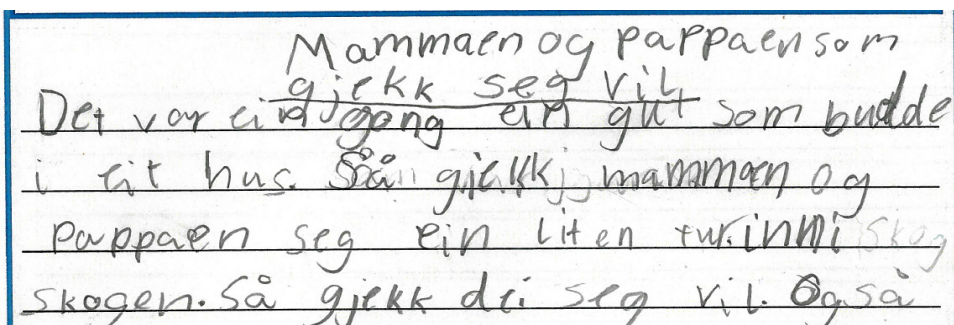 Mammaen og pappaen som
gjekk seg vil
Det var ein gong ein gut som budde
i eit hus. Så gjekk mammaen og
pappaen seg ein liten tur. inni skog
skogen. Så gjekk dei seg vil. Og så